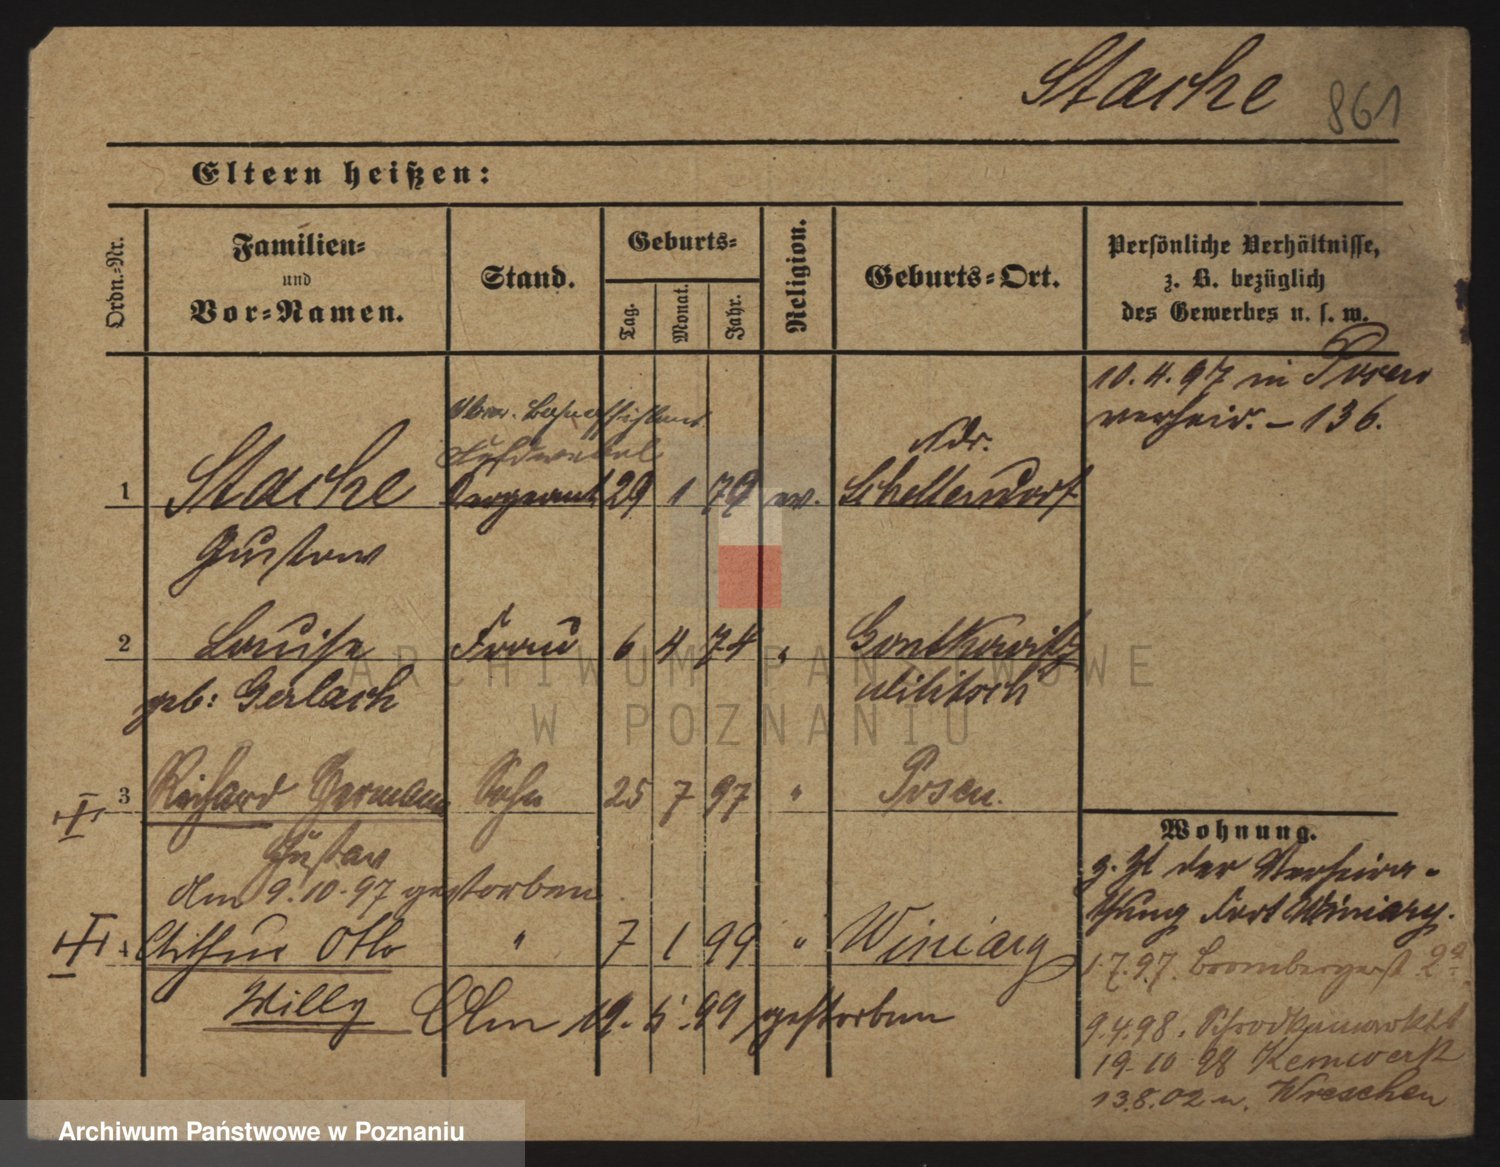 Stache 861
Eltern heißen:
Ordn.-Nr.
Familien-
und
Vor-Namen.
Stand.
Geburts-
Tag.
Monat.
Jahr.
Religion.
Geburts-Ort.
Persönliche Verhältnisse,
z. B. bezüglich
des Gewerbes u. s. w.
10.4.97 in Posen
verheir. - 136.
Feldwebel
Ndr.
1 Stache Sergeant 29 1 79 ev. Schellendorf
Gustav
2 Louise Frau 6 4 74 " Gontkowitz
geb: Gerlach Militsch
3 Richard Hermann Sohn 25 7 97 " Posen.
Gustav
Am 9.10.97 gestorben.
4 Arthur Otto " 7 1 99 " Winiary
Willy Am 19. 5. 99 gestorben
Wohnung.
z. Zt der Verheira-
thung Fort Winiary.
1.7.97. Brombergerst 2a
9.4.98. Schrodkamarkt 1
19.10 98 Kernwerk
13.8.02 n. Wreschen
ARCHIWUM PAŃSTWOWE
W POZNANIU
Archiwum Państwowe w Poznaniu